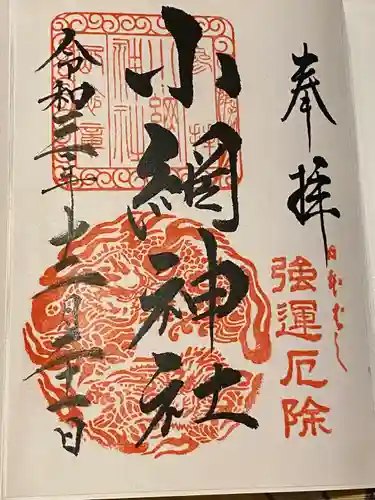 奉拝
日本橋
強運厄除
小網神社
令和三年十二月二十一日